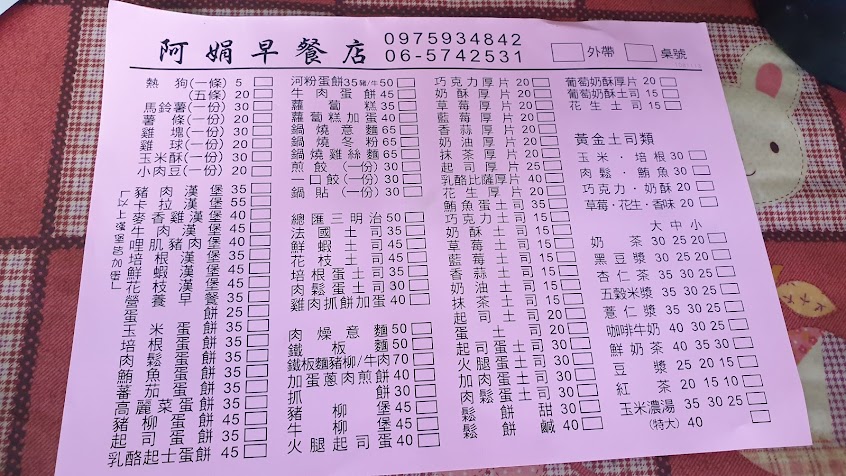 阿娟早餐店
0975934842
06-5742531
外帶 桌號
熱狗(一條) 5
(五條) 20
馬鈴薯(一份) 30
薯條(一份) 20
雞塊(一份) 30
雞球(一份) 20
玉米酥(一份) 30
小肉豆(一份) 20
「以上漢堡皆加蛋」
豬肉漢堡 35
卡拉漢堡 55
麥香雞漢堡 40
牛肉漢堡 45
哩肌豬肉堡 40
培根漢堡 45
鮮蝦漢堡 45
花枝漢堡 45
營養早餐 35
蛋餅 25
玉米蛋餅 35
培根蛋餅 35
肉鬆蛋餅 35
鮪魚蛋餅 35
蕃茄蛋餅 35
高麗菜蛋餅 35
豬柳蛋餅 45
起司蛋餅 35
乳酪起士蛋餅 45
河粉蛋餅35豬/牛50
牛肉蛋餅 45
蘿蔔糕 35
蘿蔔糕加蛋 40
鍋燒意麵 65
鍋燒冬粉 65
鍋燒雞絲麵 65
煎餃(一份) 30
一口餃(一份) 30
鍋貼(一份) 30
總匯三明治 50
法國土司 35
鮮蝦土司 40
花枝土司 45
培根蛋土司 35
肉鬆蛋土司 30
雞肉抓餅加蛋 40
肉燥意麵 50
鐵板麵 50
鐵板麵豬柳/牛肉 70
加蛋蔥肉煎餅 40
抓餅 30
豬柳堡 45
牛柳堡 45
火腿起司蛋 40
巧克力厚片 20
奶酥厚片 20
草莓厚片 20
藍莓厚片 20
香蒜厚片 20
奶油厚片 20
抹茶厚片 20
起司厚片 25
乳酪比薩厚片 40
花生厚片 20
鮪魚蛋土司 30
巧克力土司 15
奶酥土司 15
草莓土司 15
藍莓土司 15
香蒜土司 15
奶油土司 15
抹茶土司 15
起司土司 20
蛋土司 20
起司蛋土司 30
火腿蛋土司 30
加肉蛋土司 30
肉鬆土司 30
鬆餅甜 30
鬆餅鹹 40
葡萄奶酥厚片 20
葡萄奶酥土司 15
花生土司 15
黃金土司類
玉米·培根 30
肉鬆·鮪魚 30
巧克力·奶酥 20
草莓·花生·香味 20
大 中 小
奶茶 30 25 20
黑豆漿 30 25 20
杏仁茶 35 30 25
五穀米漿 35 30 25
薏仁漿 35 30 25
咖啡牛奶 40 30 25
鮮奶茶 40 35 30
豆漿 25 20 15
紅茶 20 15 10
玉米濃湯 35 30 25
(特大) 40